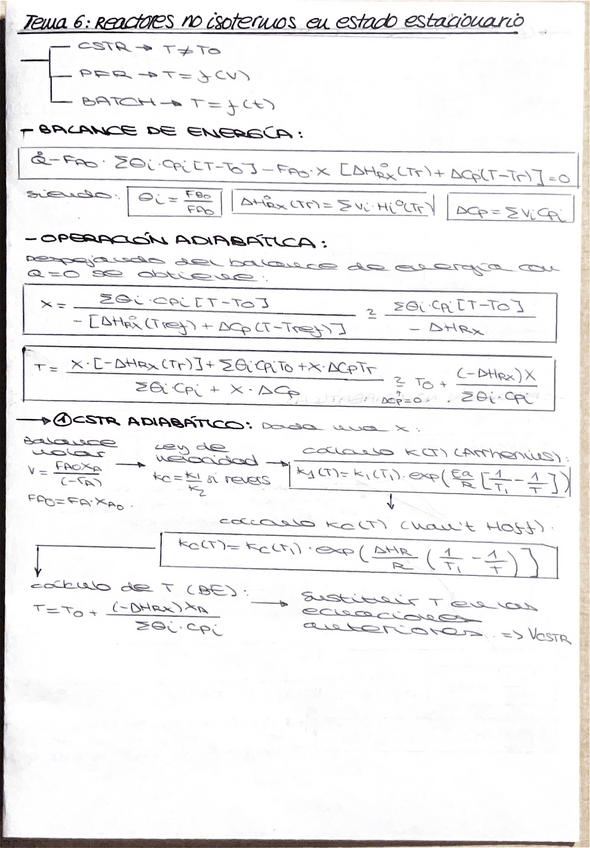 Tema 6: Reactores no isotermos en estado estacionario
CSTR → T ≠ To
PFR → T = f(V)
BATCH → T = f(t)
- BALANCE DE ENERGÍA:
Q̊ - FAo · Σθi · Cpi [T-To] - FAo · X [ΔH°Rx(Tr) + ΔCp(T-Tr)] = 0
siendo: θi = FBo/FAo   ΔH°Rx(Tr) = Σνi · Hi°(Tr)   ΔCp = ΣνiCpi
- OPERACIÓN ADIABÁTICA:
Despejando del balance de energía con
Q=0 se obtiene:
X = Σθi · Cpi [T-To] / -[ΔH°Rx(Tref) + ΔCp(T-Tref)] ≃ Σθi · Cpi [T-To] / -ΔHRx
T = X · [-ΔHRx(Tr)] + Σθi CpiTo + X · ΔCpTr / Σθi · Cpi + X · ΔCp ≃ To + (-ΔHRx)X / Σθi · Cpi
ΔCp=0
→ ① CSTR ADIABÁTICO: Dada una X:
Balance molar
V = FAoXA / (-rA)
FAo = FA · XAo.
→ Ley de velocidad
KC = K1/K2 si revers
→ cálculo K(T) (Arrhenius):
K1(T) = K1(T1) · exp(Ea/R [1/T1 - 1/T])
↓
cálculo KC(T) (Van't Hoff).
KC(T) = KC(T1) · exp(ΔHR/R (1/T1 - 1/T)]
cálculo de T (BE):
T = To + (-ΔHRx)XA / Σθi · Cpi
→ Sustituir T en las
ecuaciones
anteriores => VCSTR